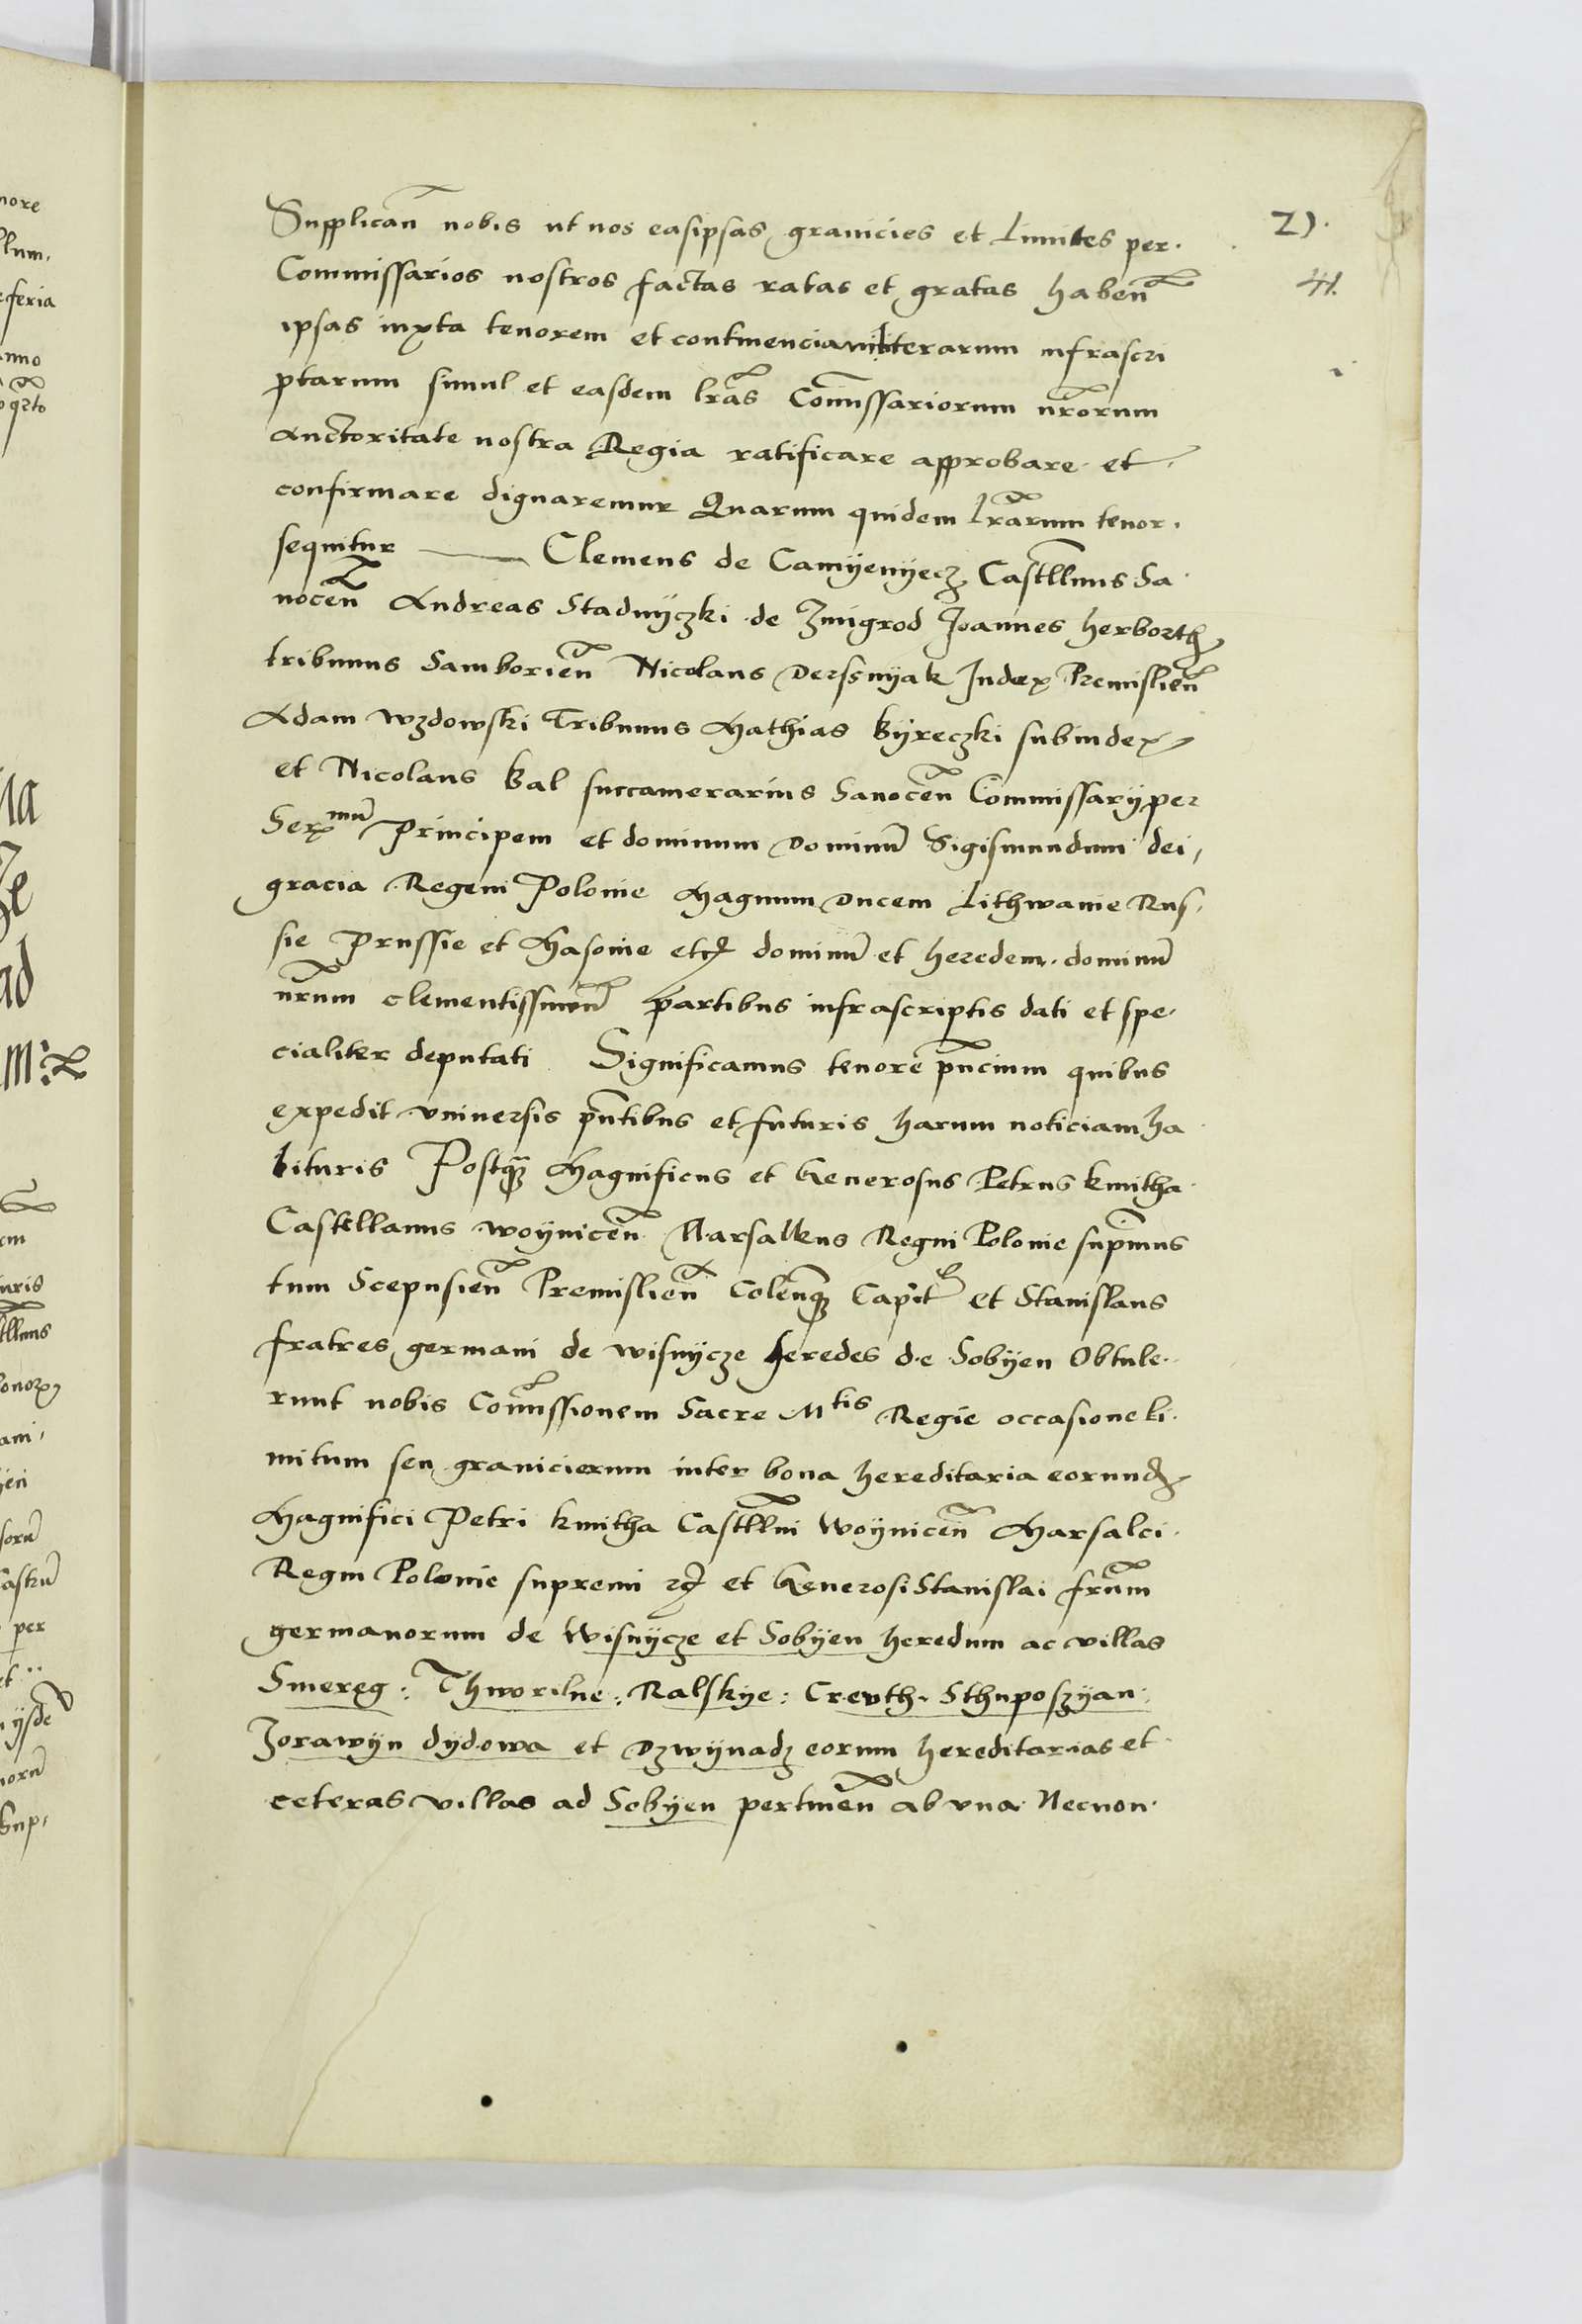 Supplican̄ nobis ut nos easipsas granicies et limites per.
21.
Commissarios nostros factas ratas et gratas haben̄
41.
ipsas iuxta tenorem et continenciam litterarum infrascri
ptarum simul et easdem lr̄as Com̄issariorum nr̄orum
Auctoritate nostra Regia ratificare approbare et
confirmare dignaremur Quarum quidem lr̄arum tenor.
sequitur —— Clemens de Camÿenÿecz Castll̄nus Sa
nocen̄ Andreas Stadnÿczki de Zmigrod Joannes herborth
tribunus Samborien̄ Nicolaus Derssnÿak Judex Premislien̄
Adam Wzdowski Tribunus Mathias Bÿreczki subiudex
et Nicolaus Bal succamerarius Sanocen̄ Commissarÿ per
Ser.mū principem et dominum dominū Sigismundum dei
gracia Regem Polonie Magnum Ducem Lithwanie Rus
sie Prussie et Masovie etc̄ dominū et heredem dominū
nr̄um clementissimū partibus infrascriptis dati et spe
cialiter deputati Significamus tenore pn̄cium quibus
expedit universis pn̄tibus et futuris harum noticiam ha
bituris Postqz̄ Magnificus et Generosus Petrus kmitha
Castellanus woÿnicen̄ Marsalkus Regni Polonie sup̄mus
tum Scepusien̄ Premislien̄ Colen̄qz Capit̄ et Stanislaus
fratres germani de wisnÿcze heredes de Sobÿen Obtule
runt nobis Com̄issionem Sacre Mtis Regie occasione li
mitum seu granicierum inter bona hereditaria eorund̄
Magnifici Petri kmitha Castll̄ni Woÿnicen̄ Marsalci
Regni Polonie supremi etc̄ et Generosi Stanislai fr̄um
germanorum de Wisnÿcze et Sobÿen heredum ac villas
Smereg: Thworilne: Ralskye: Crevth. Sthuposzÿan
Zorawÿn dÿdowa et Dzwÿnadz eorum hereditarias et
ceteras villas ad Sobÿen pertinen̄ ab una Necnon